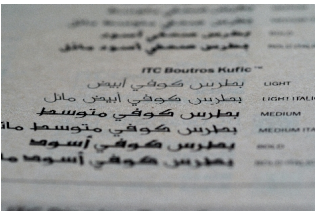 بطرس صحفي أسود BOLD
بطرس صحفي أسود مائل BOLD ITALIC
ITC Boutros Kufic™
بطرس كوفي أبيض LIGHT
بطرس كوفي أبيض مائل LIGHT ITALIC
بطرس كوفي متوسط MEDIUM
بطرس كوفي متوسط مائل MEDIUM ITALIC
بطرس كوفي أسود BOLD
بطرس كوفي أسود BOLD ITALIC